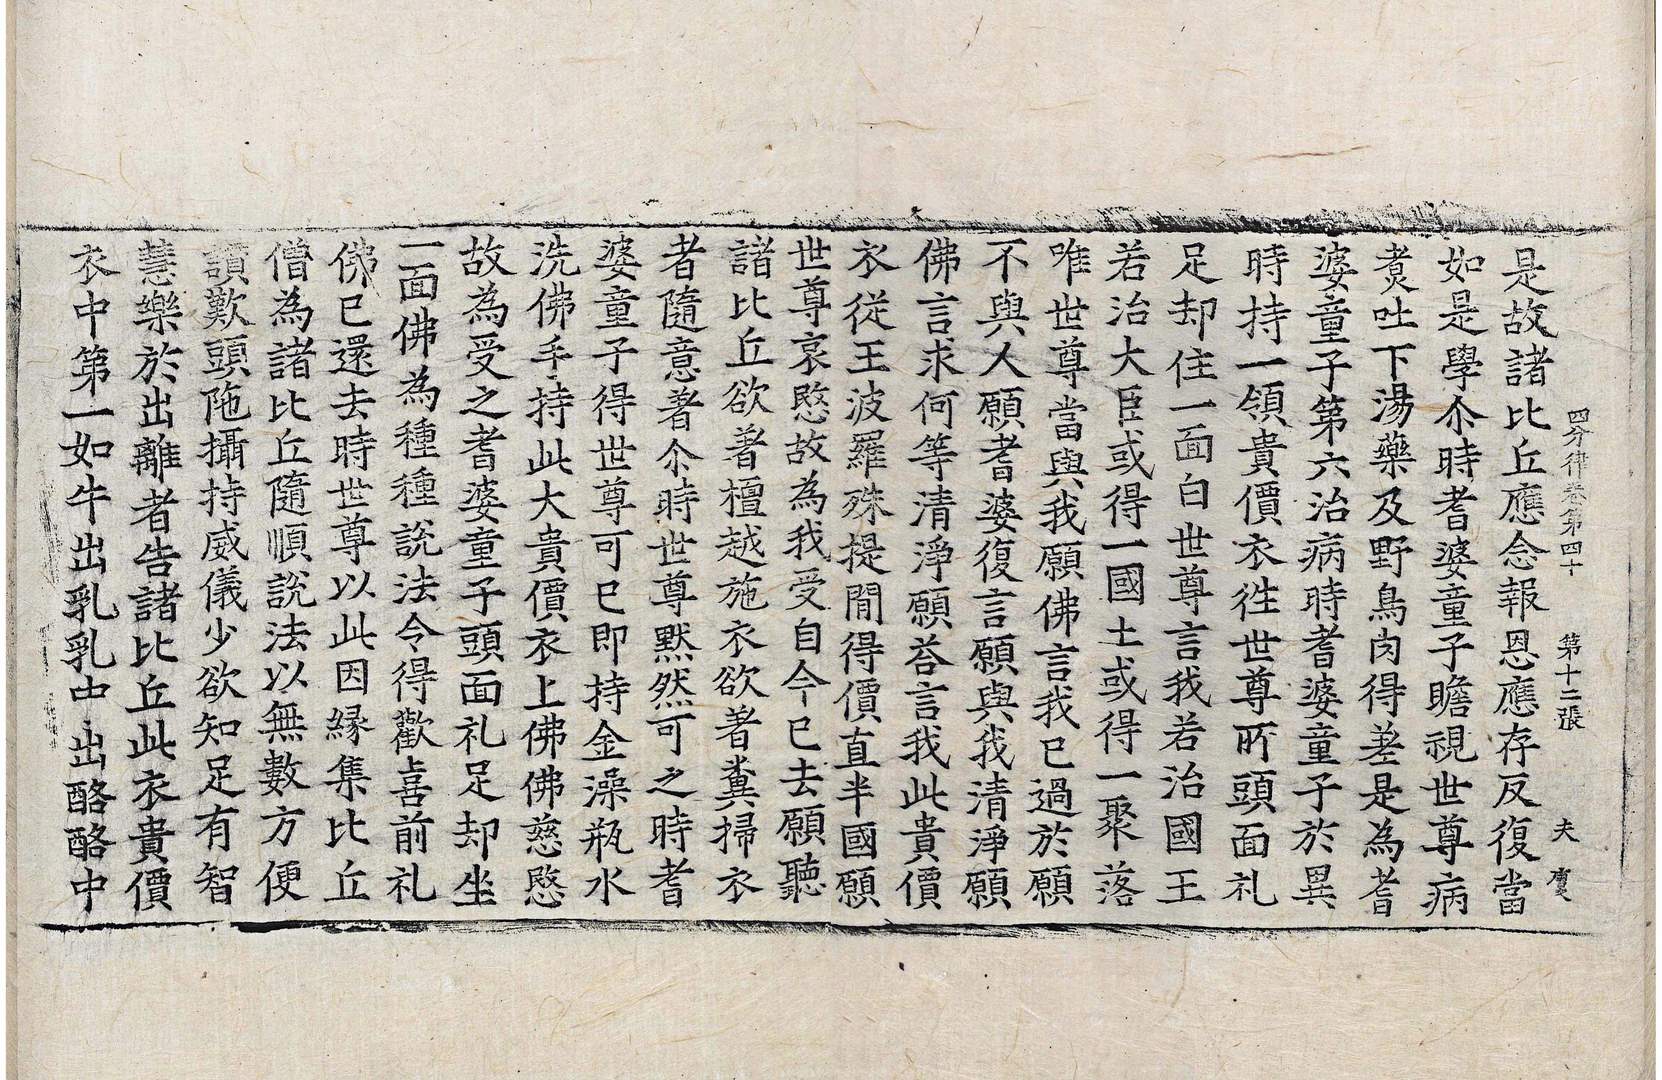 四分律卷第四十 第十二張 夫
是故諸比丘應念報恩應存反復當
如是學尒時耆婆童子瞻視世尊病
煑吐下湯藥及野鳥肉得差是為耆
婆童子第六治病時耆婆童子於異
時持一領貴價衣徃世尊所頭面礼
足却住一面白世尊言我若治國王
若治大臣或得一國土或得一聚落
唯世尊當與我願佛言我已過於願
不與人願耆婆復言願與我清淨願
佛言求何等清淨願荅言我此貴價
衣從王波羅殊提閒得價直半國願
世尊哀愍故為我受自今已去願聽
諸比丘欲著檀越施衣欲著糞掃衣
者隨意著尒時世尊默然可之時耆
婆童子得世尊可已即持金澡瓶水
洗佛手持此大貴價衣上佛佛慈愍
故為受之耆婆童子頭面礼足却坐
一面佛為種種說法令得歡喜前礼
佛已還去時世尊以此因緣集比丘
僧為諸比丘隨順說法以無數方便
讚歎頭陁攝持威儀少欲知足有智
慧樂於出離者告諸比丘此衣貴價
衣中第一如牛出乳乳中出酪酪中